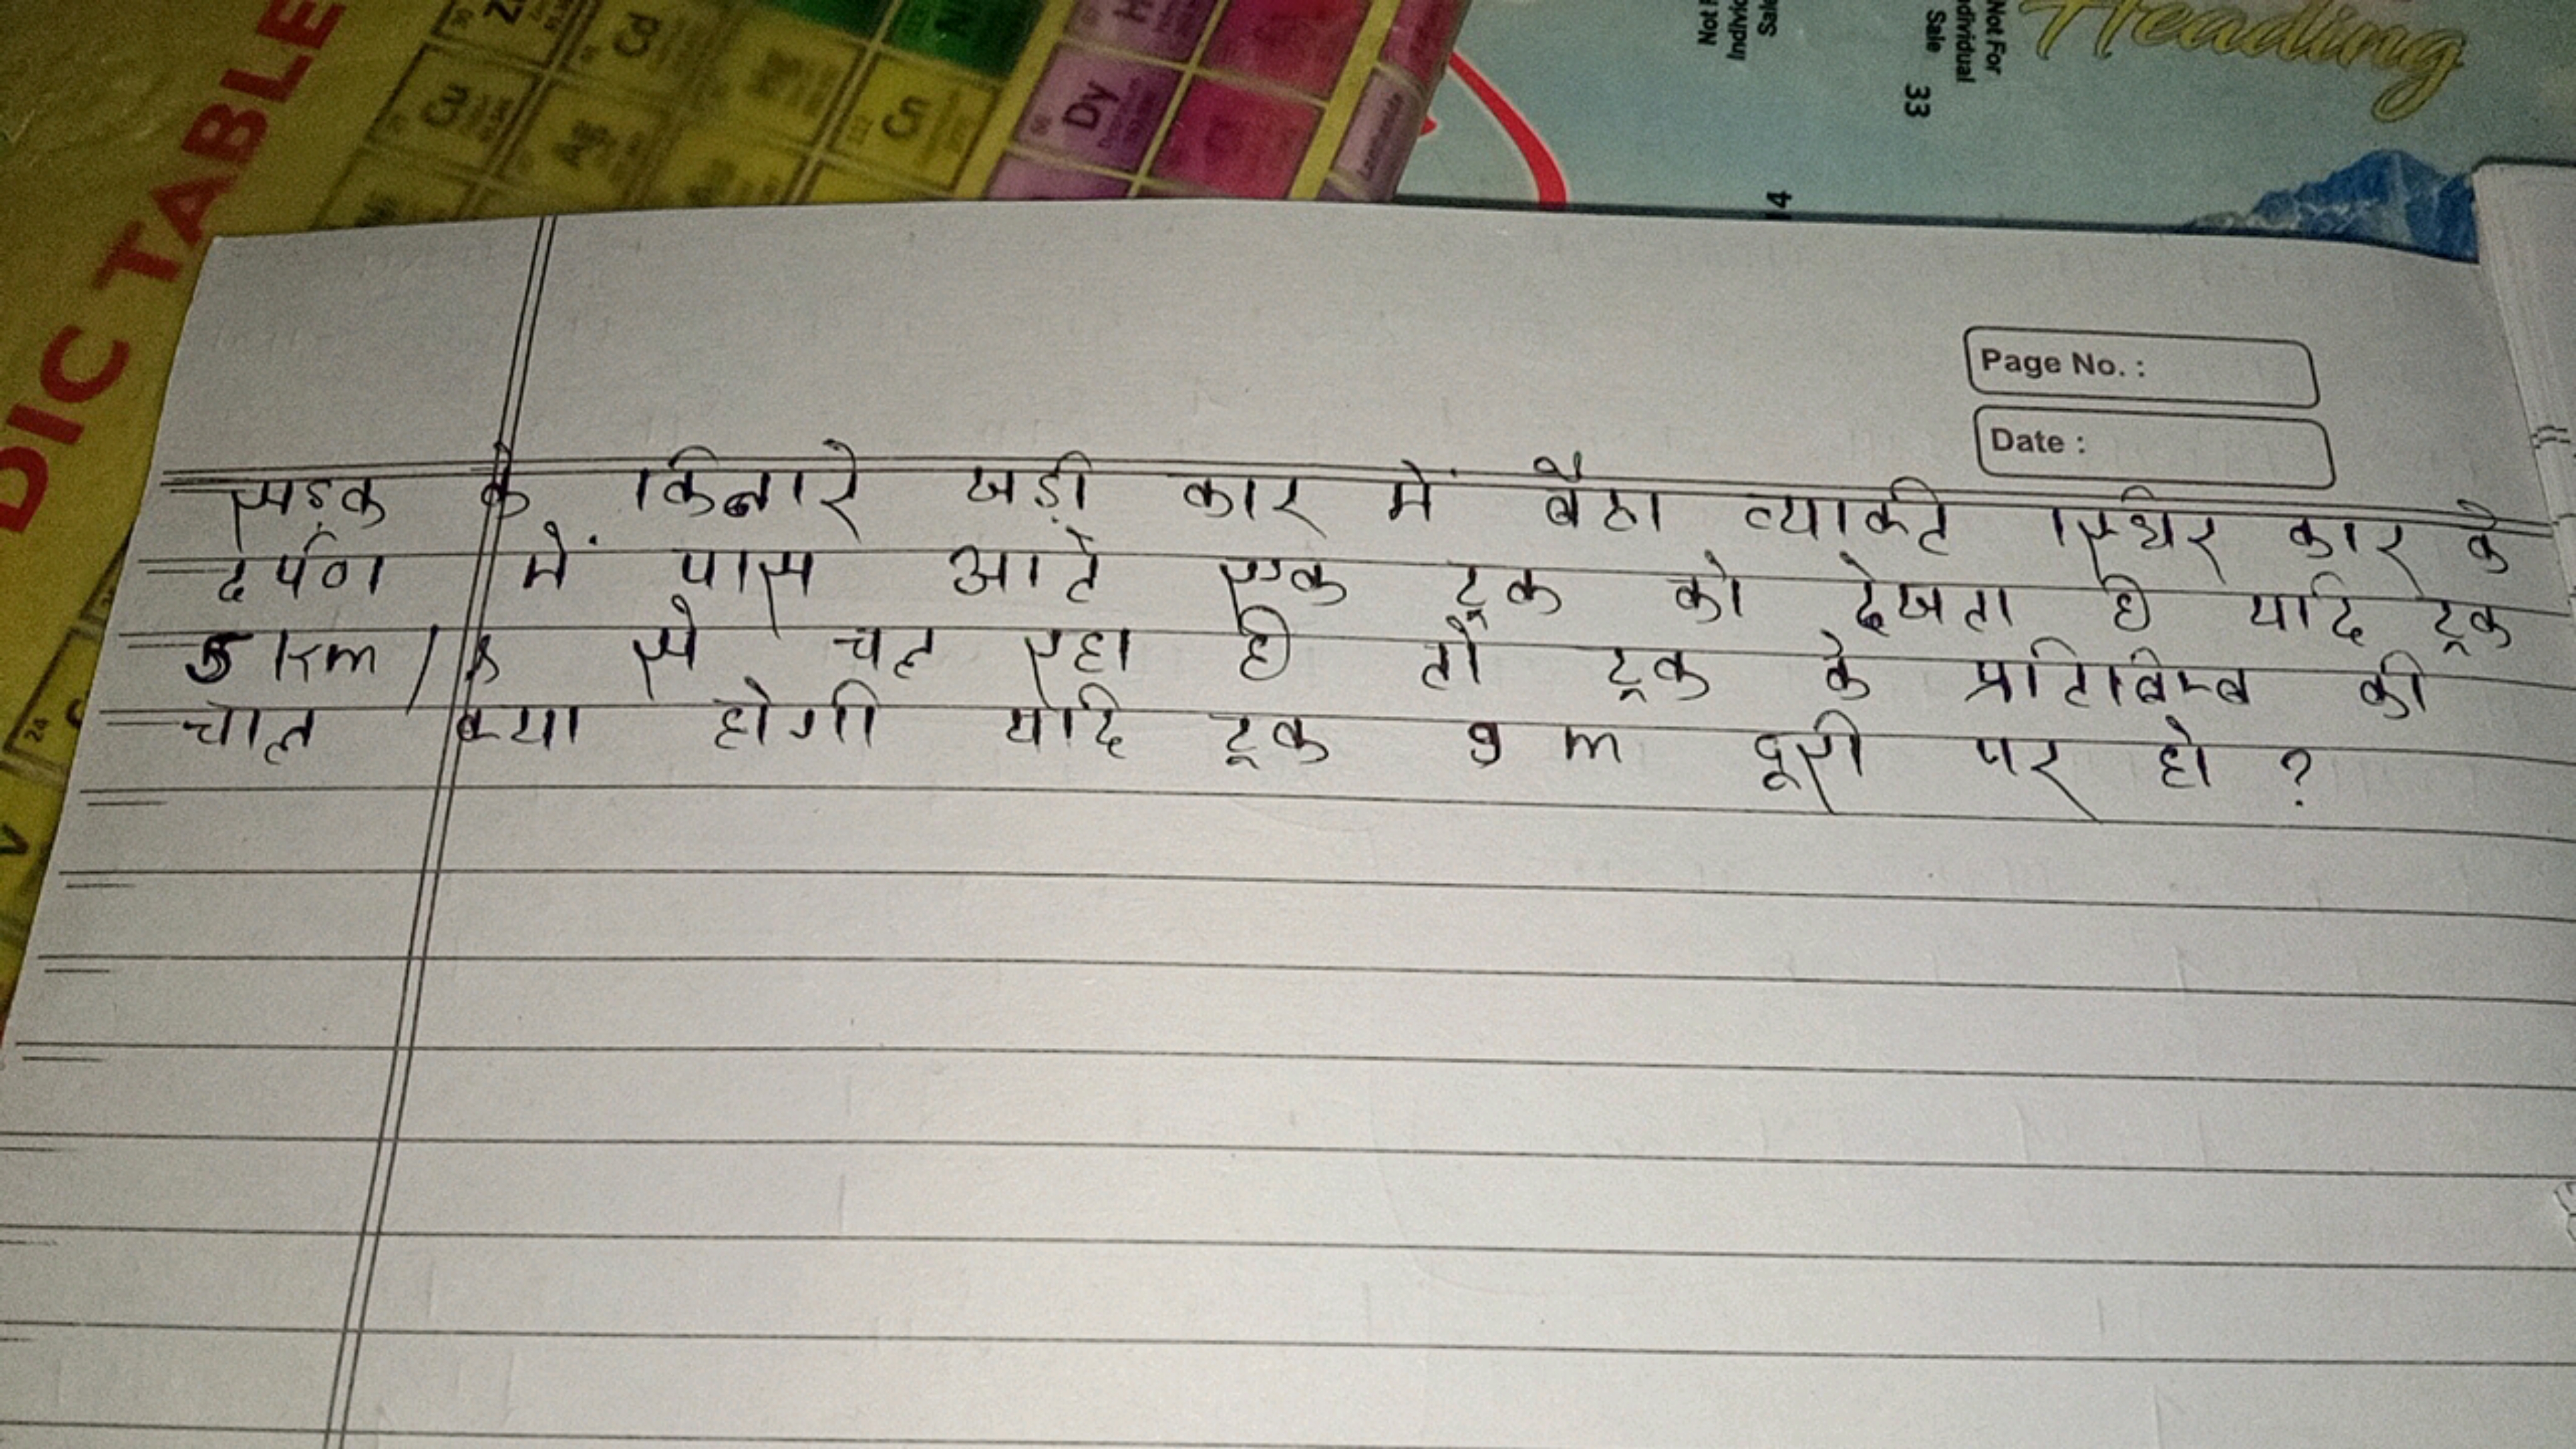 DIC TABLE
Cd
Cu
Ag
Dy
Cn
Not For
Individual
Sale
33
14
Heading
Page No. :
Date :
सड़क के किनारे खड़ी कार में बैठा व्यक्ति स्थिर कार के
दर्पण में पास आते एक ट्रक को देखता है यदि ट्रक
5 km/s से चल रहा है तो ट्रक के प्रतिबिम्ब की
चाल क्या होगी यदि ट्रक 9 m दूरी पर हो ?